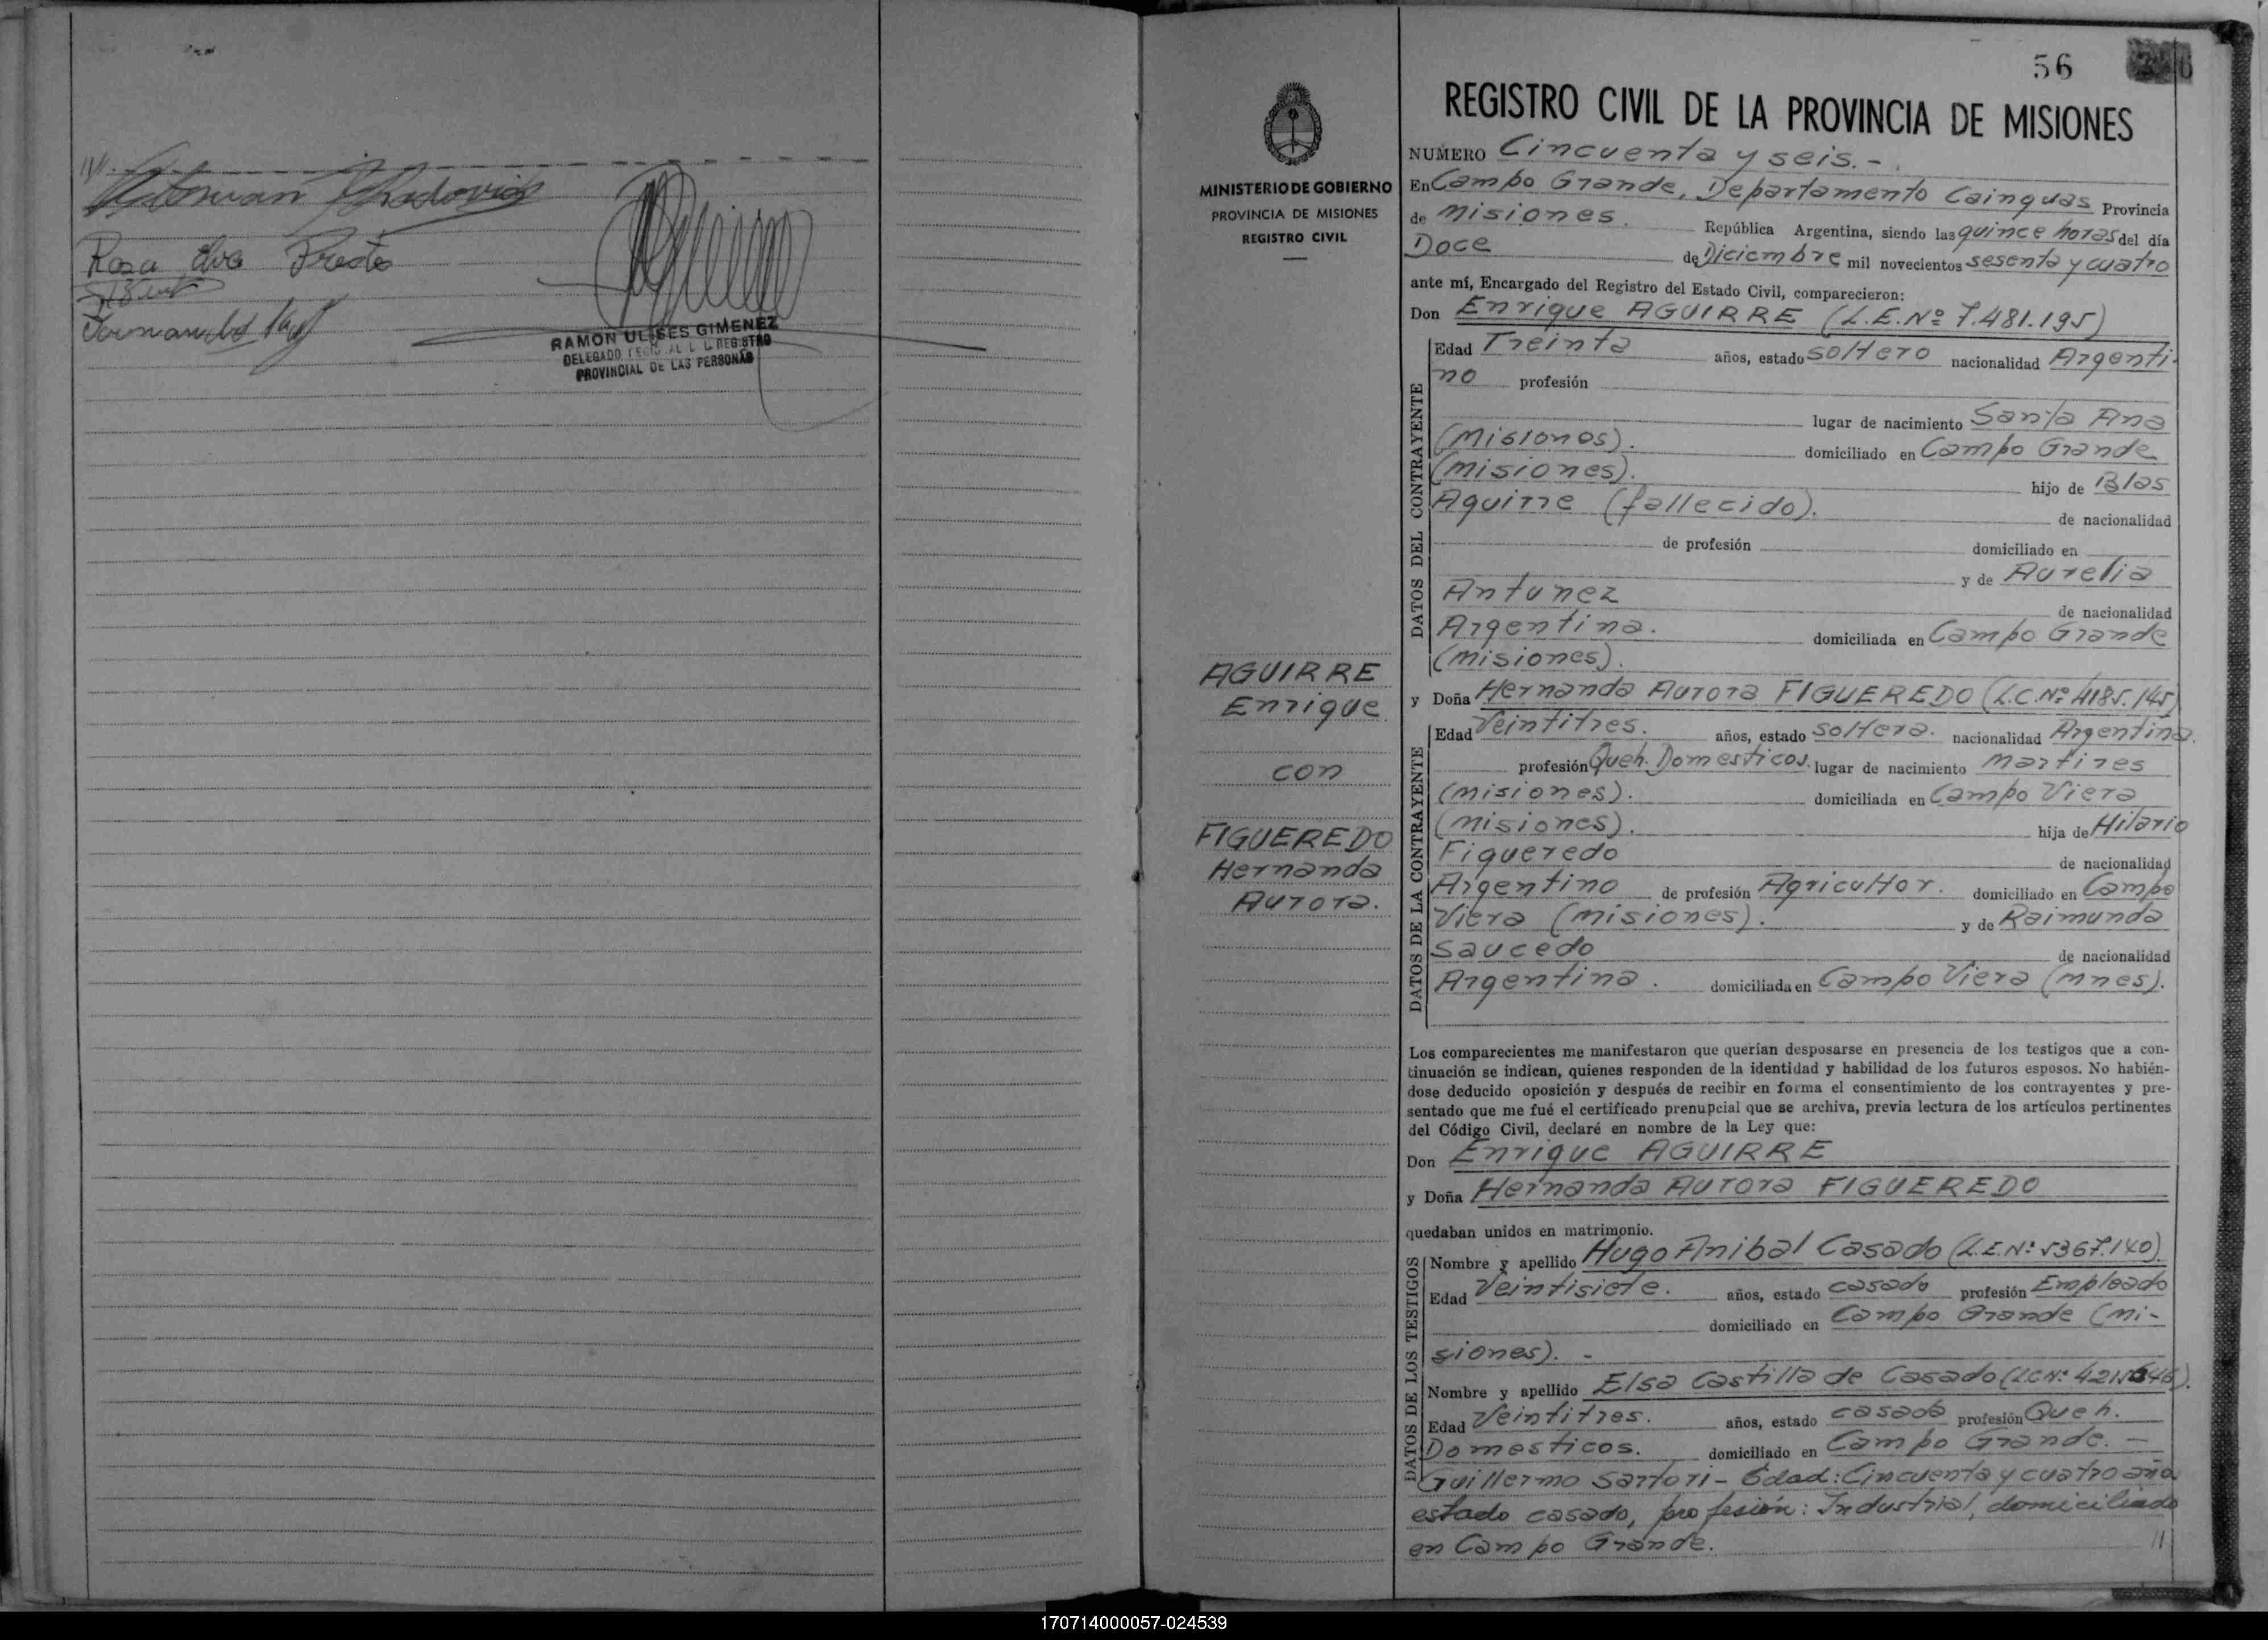 Rosa
RAMON ULISES GIMENEZ
DELEGADO
PROVINCIAL DE LAS PERSONAS
56
REGISTRO CIVIL DE LA PROVINCIA DE MISIONES
MINISTERIO DE GOBIERNO
PROVINCIA DE MISIONES
REGISTRO CIVIL
AGUIRRE
Enrique
con
FIGUEREDO
Hernanda
Aurora.
NUMERO Cincuenta y seis.-
En Campo Grande, Departamento Cainguas Provincia
de Misiones. República Argentina, siendo las quince horas del día
Doce de Diciembre mil novecientos sesenta y cuatro
ante mí, Encargado del Registro del Estado Civil, comparecieron:
Don Enrique AGUIRRE (L.E.Nº 7.481.195)
DATOS DEL CONTRAYENTE
Edad Treinta años, estado soltero nacionalidad Argenti-
no profesión
lugar de nacimiento Santa Ana
(Misiones). domiciliado en Campo Grande
(Misiones). hijo de Blas
Aguirre (fallecido). de nacionalidad
de profesión domiciliado en
y de Aurelia
Antunez de nacionalidad
Argentina. domiciliada en Campo Grande
(Misiones).
y Doña Hernanda Aurora FIGUEREDO (L.C.Nº 4185.145)
DATOS DE LA CONTRAYENTE
Edad Veintitres. años, estado soltera. nacionalidad Argentina.
profesión Queh. Domesticos. lugar de nacimiento Martires
(Misiones). domiciliada en Campo Viera
(Misiones). hija de Hilario
Figueredo de nacionalidad
Argentino de profesión Agricultor. domiciliado en Campo
Viera (Misiones). y de Raimunda
Saucedo de nacionalidad
Argentina. domiciliada en Campo Viera (Mnes).
Los comparecientes me manifestaron que querían desposarse en presencia de los testigos que a con-
tinuación se indican, quienes responden de la identidad y habilidad de los futuros esposos. No habién-
dose deducido oposición y después de recibir en forma el consentimiento de los contrayentes y pre-
sentado que me fué el certificado prenupcial que se archiva, previa lectura de los artículos pertinentes
del Código Civil, declaré en nombre de la Ley que:
Don Enrique AGUIRRE
y Doña Hernanda Aurora FIGUEREDO
quedaban unidos en matrimonio.
DATOS DE LOS TESTIGOS
Nombre y apellido Hugo Anibal Casado (L.E.Nº 5367.140).
Edad Veintisiete. años, estado casado profesión Empleado
domiciliado en Campo Grande (Mi-
siones). -
Nombre y apellido Elsa Castilla de Casado (L.C.Nº
Edad Veintitres. años, estado casada profesión Queh.
Domesticos. domiciliado en Campo Grande. -
Guillermo Sartori - Edad: Cincuenta y cuatro año
estado casado, profesión: Industrial, domiciliado
en Campo Grande. //
170714000057-024539